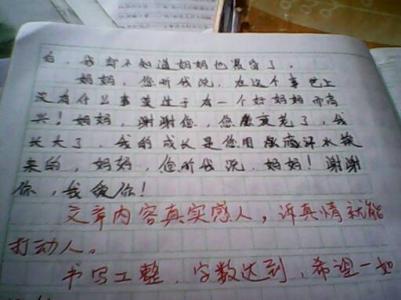 白，我却不知道妈妈也浪白了。
妈妈，您听我说，在这个事世上
没有什么事莫过于有一个好妈妈而高
兴！妈妈，谢谢您，您变老了，我
长大了，我的成长是您用血滴汗水换
来的，妈妈，您听我说，妈妈！谢谢
你，我爱你！
文章内容真实感人，诉真情就能
打动人。
书写工整，字数达到，希望一如